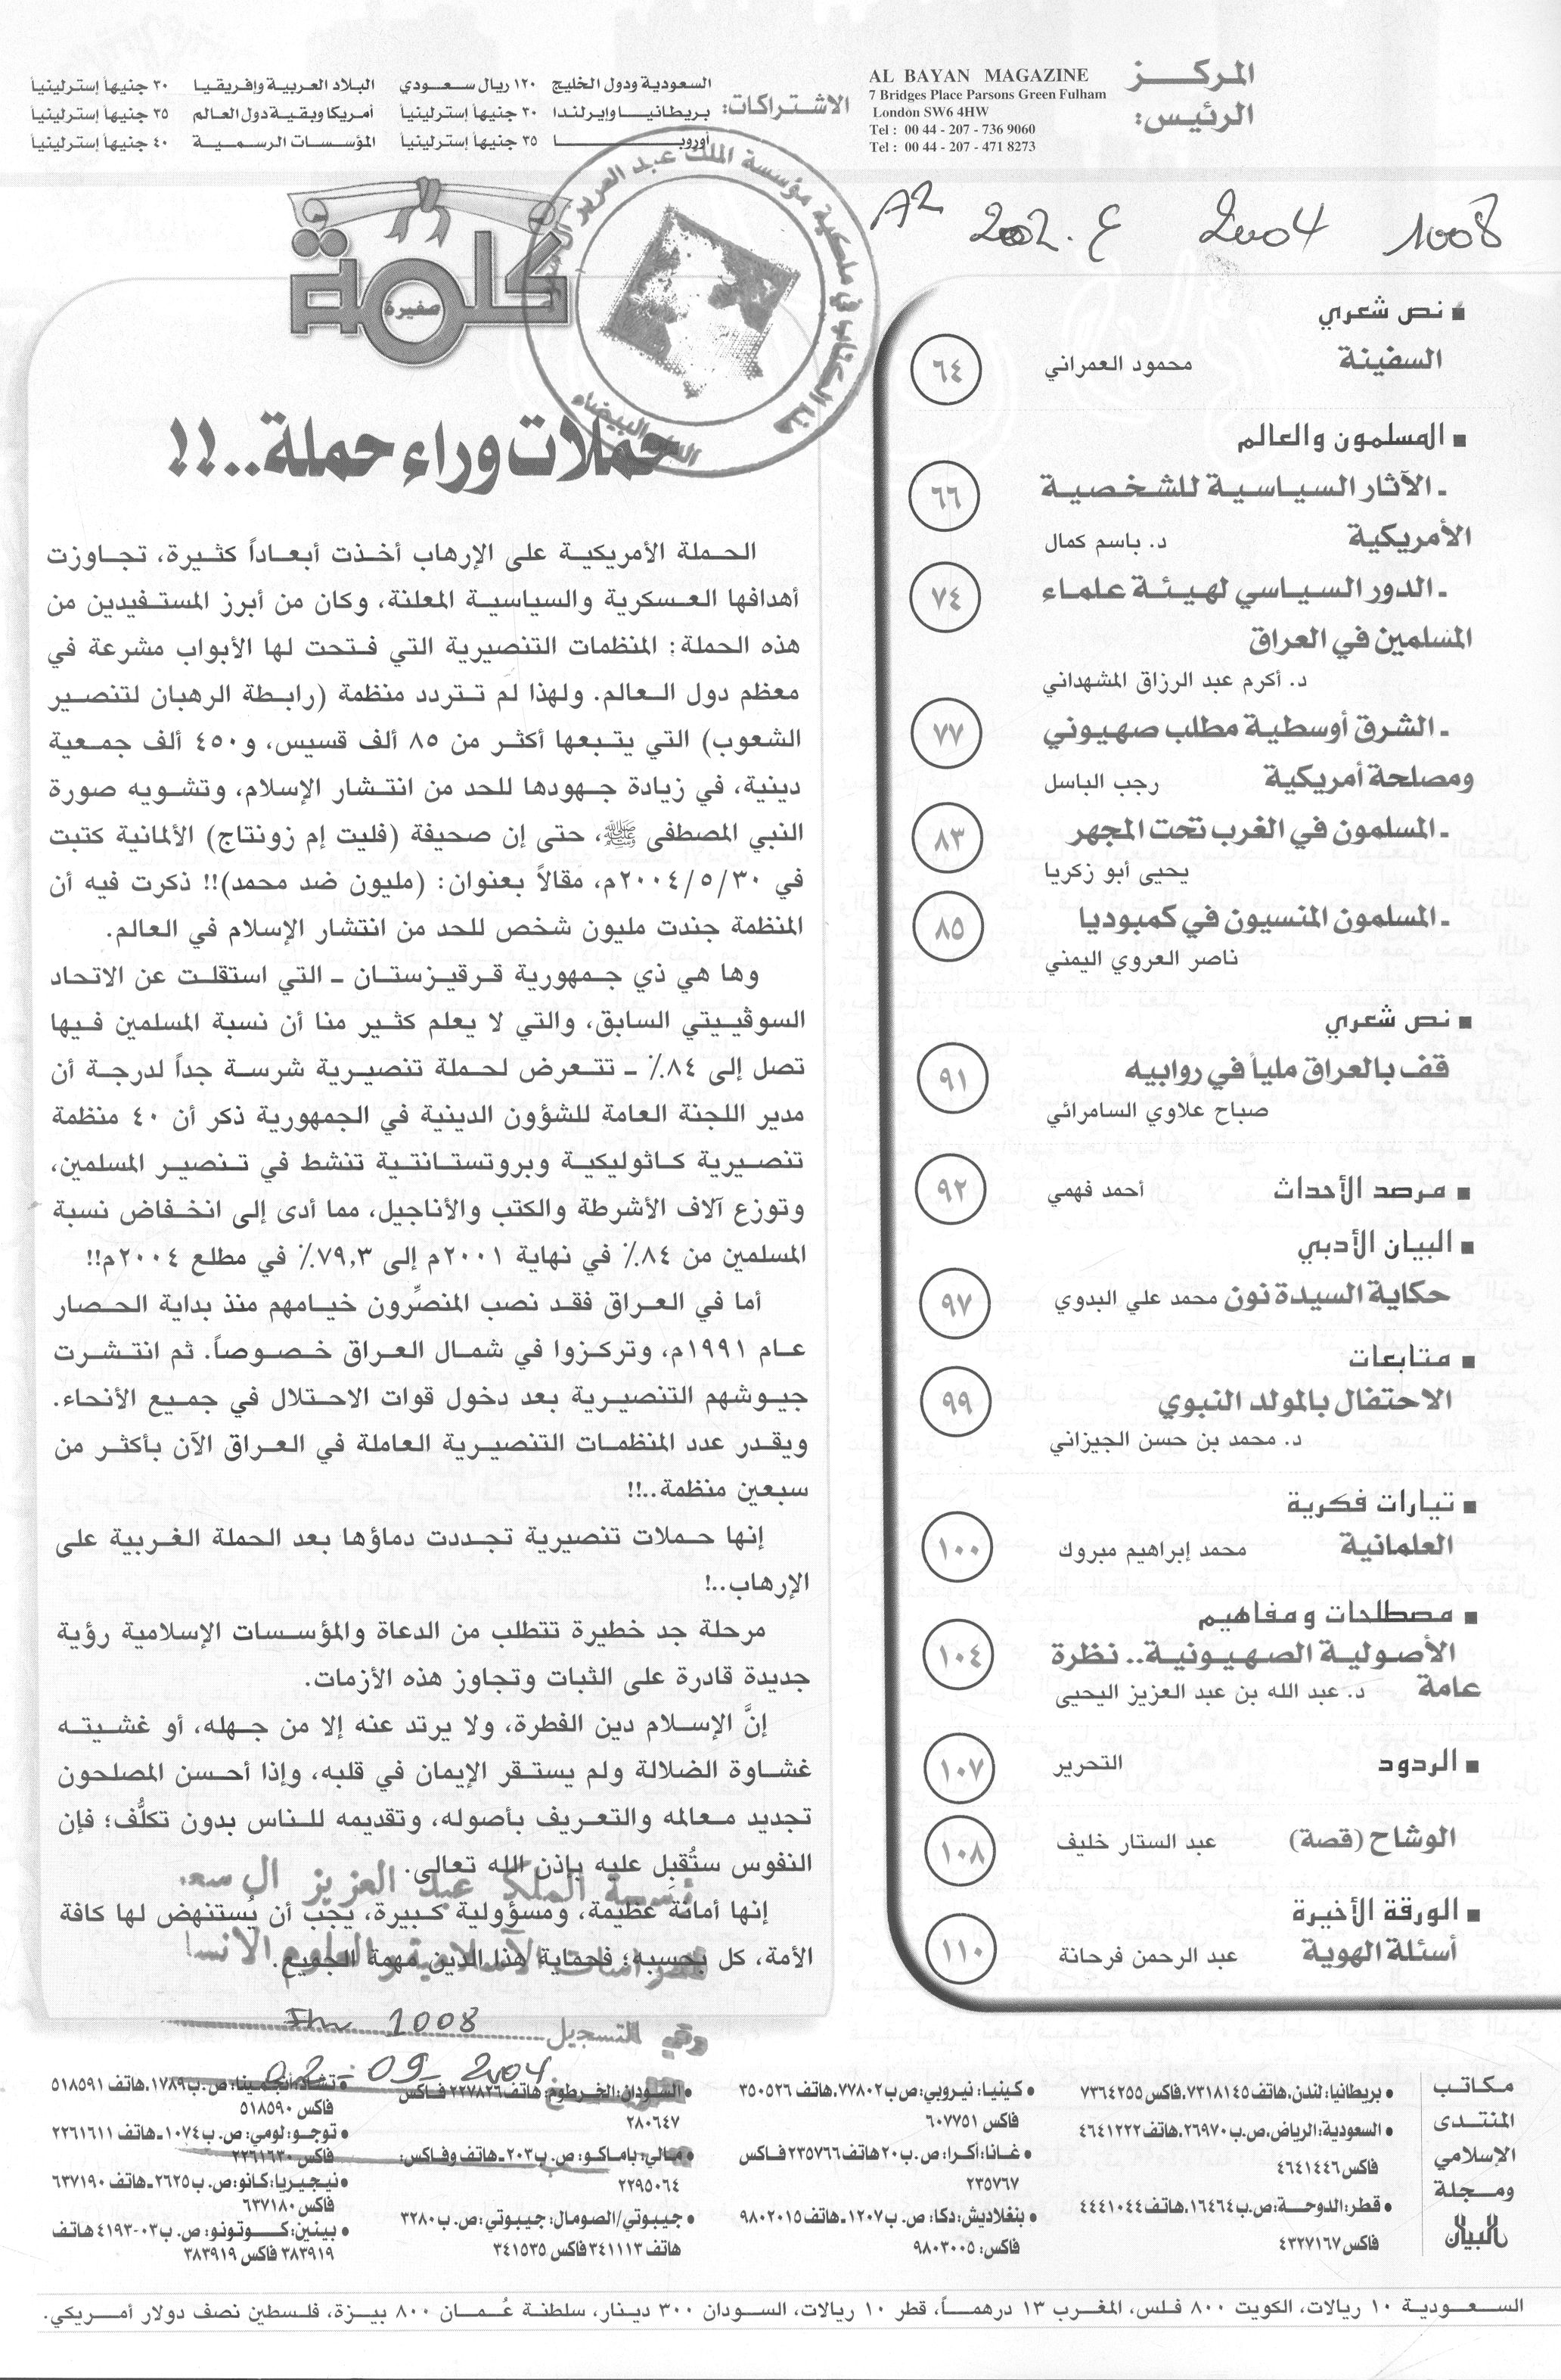 المركز
الرئيس:
AL BAYAN MAGAZINE
7 Bridges Place Parsons Green Fulham
London SW6 4HW
Tel : 00 44 - 207 - 736 9060
Tel : 00 44 - 207 - 471 8273
الاشتراكات:
السعودية ودول الخليج ١٢٠ ريال سعودي
بريطانيا وإيرلندا ٣٠ جنيهاً إسترلينياً
أوروبا ٣٥ جنيهاً إسترلينياً
البلاد العربية وإفريقيا ٣٠ جنيهاً إسترلينياً
أمريكا وبقية دول العالم ٣٥ جنيهاً إسترلينياً
المؤسسات الرسمية ٤٠ جنيهاً إسترلينياً
A2 2002.E 2004 1008
■ نص شعري
السفينة محمود العمراني ٦٤
■ المسلمون والعالم
ـ الآثار السياسية للشخصية ٦٦
الأمريكية د. باسم كمال
ـ الدور السياسي لهيئة علماء ٧٤
المسلمين في العراق
د. أكرم عبد الرزاق المشهداني
ـ الشرق أوسطية مطلب صهيوني ٧٧
ومصلحة أمريكية رجب الباسل
ـ المسلمون في الغرب تحت المجهر ٨٣
يحيى أبو زكريا
ـ المسلمون المنسيون في كمبوديا ٨٥
ناصر العروي اليمني
■ نص شعري
قف بالعراق ملياً في روابيه ٩١
صباح علاوي السامرائي
■ مرصد الأحداث أحمد فهمي ٩٢
■ البيان الأدبي
حكاية السيدة نون محمد علي البدوي ٩٧
■ متابعات
الاحتفال بالمولد النبوي ٩٩
د. محمد بن حسن الجيزاني
■ تيارات فكرية
العلمانية محمد إبراهيم مبروك ١٠٠
■ مصطلحات ومفاهيم
الأصولية الصهيونية.. نظرة ١٠٤
عامة د. عبد الله بن عبد العزيز اليحيى
■ الردود التحرير ١٠٧
الوشاح (قصة) عبد الستار خليف ١٠٨
■ الورقة الأخيرة
أسئلة الهوية عبد الرحمن فرحانة ١١٠
كلمة
صغيرة
حملات وراء حملة..!!
الحملة الأمريكية على الإرهاب أخذت أبعاداً كثيرة، تجاوزت
أهدافها العسكرية والسياسية المعلنة، وكان من أبرز المستفيدين من
هذه الحملة: المنظمات التنصيرية التي فتحت لها الأبواب مشرعة في
معظم دول العالم. ولهذا لم تتردد منظمة (رابطة الرهبان لتنصير
الشعوب) التي يتبعها أكثر من ٨٥ ألف قسيس، و٤٥٠ ألف جمعية
دينية، في زيادة جهودها للحد من انتشار الإسلام، وتشويه صورة
النبي المصطفى ﷺ، حتى إن صحيفة (فليت إم زونتاج) الألمانية كتبت
في ٢٠٠٤/٥/٣٠م، مقالاً بعنوان: (مليون ضد محمد)!! ذكرت فيه أن
المنظمة جندت مليون شخص للحد من انتشار الإسلام في العالم.
وها هي ذي جمهورية قرقيزستان ـ التي استقلت عن الاتحاد
السوڤييتي السابق، والتي لا يعلم كثير منا أن نسبة المسلمين فيها
تصل إلى ٨٤٪ ـ تتعرض لحملة تنصيرية شرسة جداً لدرجة أن
مدير اللجنة العامة للشؤون الدينية في الجمهورية ذكر أن ٤٠ منظمة
تنصيرية كاثوليكية وبروتستانتية تنشط في تنصير المسلمين،
وتوزع آلاف الأشرطة والكتب والأناجيل، مما أدى إلى انخفاض نسبة
المسلمين من ٨٤٪ في نهاية ٢٠٠١م إلى ٧٩,٣٪ في مطلع ٢٠٠٤م!!
أما في العراق فقد نصب المنصِّرون خيامهم منذ بداية الحصار
عام ١٩٩١م، وتركزوا في شمال العراق خصوصاً. ثم انتشرت
جيوشهم التنصيرية بعد دخول قوات الاحتلال في جميع الأنحاء.
ويقدر عدد المنظمات التنصيرية العاملة في العراق الآن بأكثر من
سبعين منظمة..!!
إنها حملات تنصيرية تجددت دماؤها بعد الحملة الغربية على
الإرهاب..!
مرحلة جد خطيرة تتطلب من الدعاة والمؤسسات الإسلامية رؤية
جديدة قادرة على الثبات وتجاوز هذه الأزمات.
إنَّ الإسلام دين الفطرة، ولا يرتد عنه إلا من جهله، أو غشيته
غشاوة الضلالة ولم يستقر الإيمان في قلبه، وإذا أحسن المصلحون
تجديد معالمه والتعريف بأصوله، وتقديمه للناس بدون تكلُّف؛ فإن
النفوس ستُقبِل عليه بإذن الله تعالى.
إنها أمانة عظيمة، ومسؤولية كبيرة، يجب أن يُستنهض لها كافة
الأمة، كل بحسبه؛ فحماية هذا الدين مهمة الجميع.
مؤسسة الملك عبد العزيز آل سعود
للدراسات الإسلامية والعلوم الإنسا
رقم التسجيل 1008
02-09-2004
مكاتب
المنتدى
الإسلامي
ومجلة
البيان
• بريطانيا: لندن، هاتف ٧٣١٨١٤٥، فاكس ٧٣٦٤٢٥٥
• السعودية: الرياض، ص.ب ٢٦٩٧٠، هاتف ٤٦٤١٢٢٢
فاكس ٤٦٤١٤٤٦
• قطر: الدوحة: ص.ب ١٦٤٦٤، هاتف ٤٤٤١٠٤٤
فاكس ٤٣٢٧١٦٧
• كينيا: نيروبي: ص ب ٧٧٨٠٢، هاتف ٣٥٠٥٢٦
فاكس ٦٠٧٧٥١
• غانا: أكرا: ص.ب ٢٠ هاتف ٢٣٥٧٦٦ فاكس
٢٣٥٧٦٧
• بنغلاديش: دكا: ص. ب ١٢٠٧ ـ هاتف ٩٨٠٢٠١٥
فاكس: ٩٨٠٣٠٠٥
• السودان: الخرطوم: هاتف ٢٢٧٨٢٦ فاكس
٢٨٠٦٤٧
• مالي: باماكو: ص. ب ٢٠٣ ـ هاتف وفاكس:
٢٢٩٥٠٦٤
• جيبوتي/الصومال: جيبوتي: ص. ب ٣٢٨٠
هاتف ٣٤١١١٣ فاكس ٣٤١٥٣٥
• تشاد: أنجمينا: ص. ب ١٧٨٩، هاتف ٥١٨٥٩١
فاكس ٥١٨٥٩٠
• توجو: لومي: ص. ب ١٠٧٤ ـ هاتف ٢٢٦١٦١١
فاكس ٢٢٦١٦٣٠
• نيجيريا: كانو: ص. ب ٢٦٢٥ ـ هاتف ٦٣٧١٩٠
فاكس ٦٣٧١٨٠
• بينين: كوتونو: ص. ب ٠٣-٤١٩٣ هاتف
٣٨٣٩١٩ فاكس ٣٨٣٩١٩
السعودية ١٠ ريالات، الكويت ٨٠٠ فلس، المغرب ١٣ درهماً، قطر ١٠ ريالات، السودان ٣٠٠ دينار، سلطنة عُمان ٨٠٠ بيزة، فلسطين نصف دولار أمريكي.